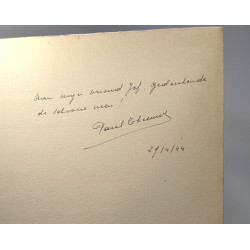 Aan mijn vriend Jef, gedenkende
de schoone uren!
Paul
29/4/44